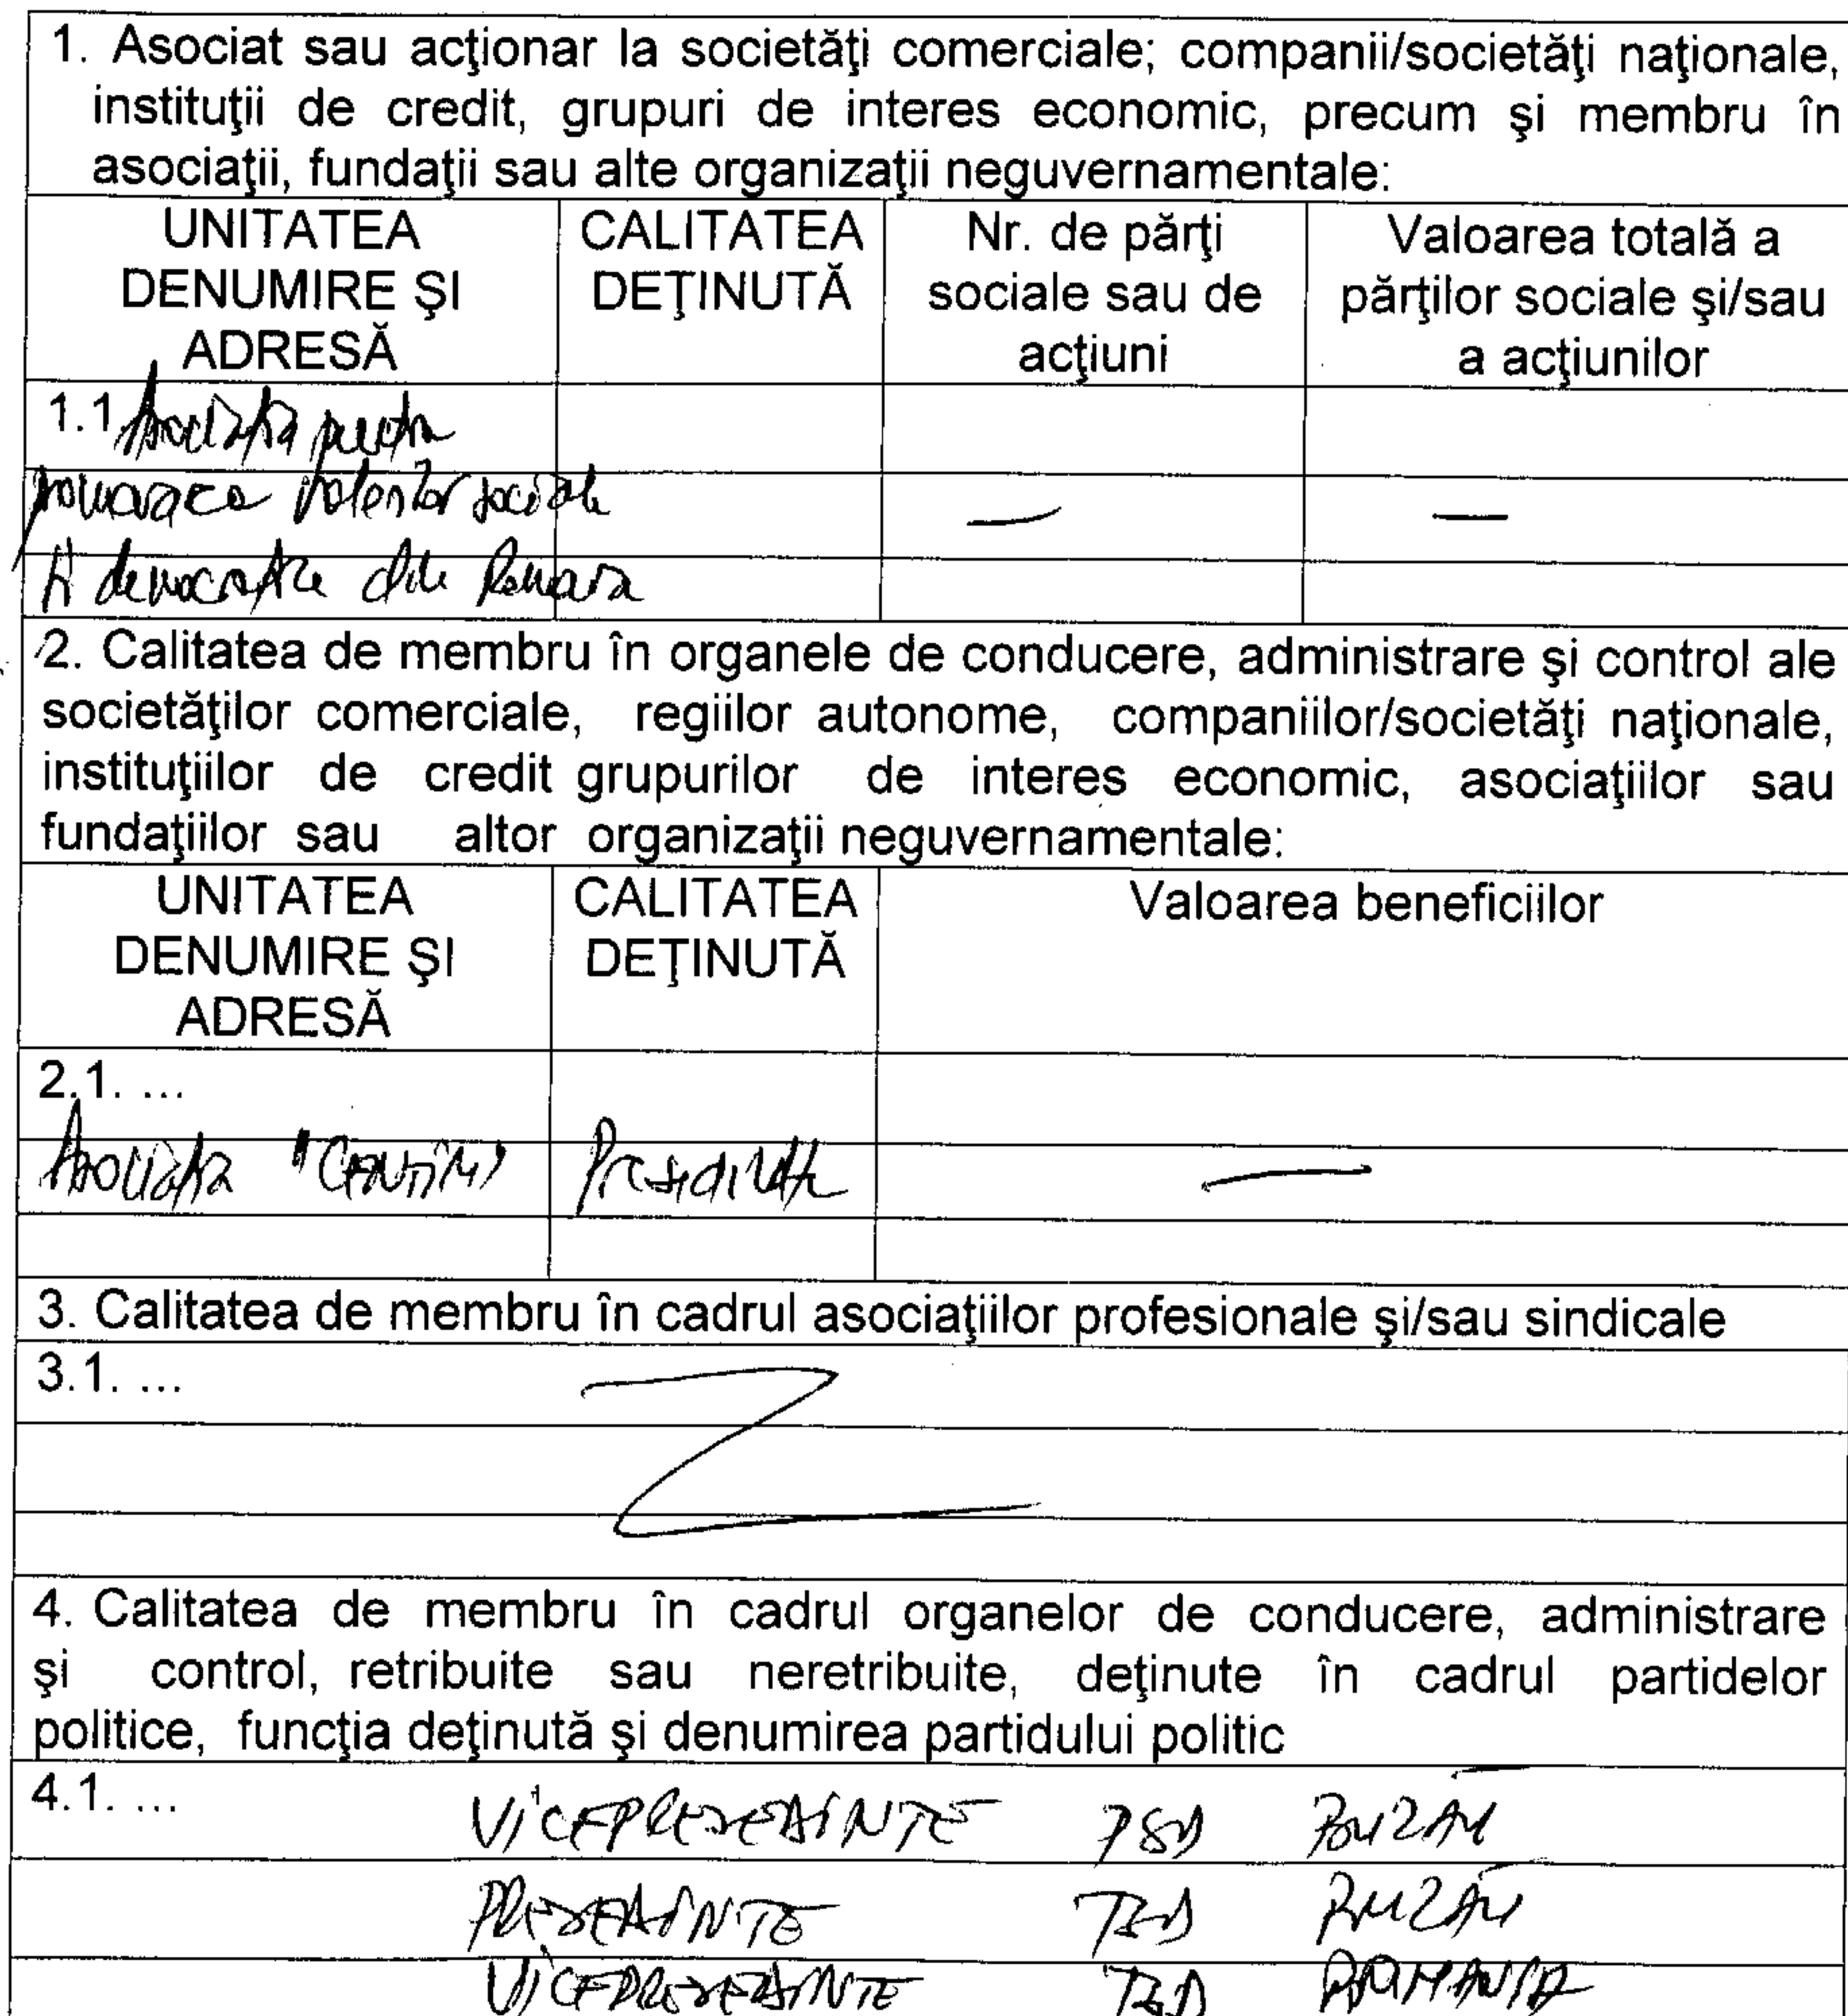 1. Asociat sau acţionar la societăţi comerciale; companii/societăţi naţionale,
instituţii de credit, grupuri de interes economic, precum şi membru în
asociaţii, fundaţii sau alte organizaţii neguvernamentale:
UNITATEA
DENUMIRE ŞI
ADRESĂ
CALITATEA
DEŢINUTĂ
Nr. de părţi
sociale sau de
acţiuni
Valoarea totală a
părţilor sociale şi/sau
a acţiunilor
1.1 Asociaţia pentru
promovarea valorilor sociale
şi democratice din Romania
—
—
2. Calitatea de membru în organele de conducere, administrare şi control ale
societăţilor comerciale, regiilor autonome, companiilor/societăţi naţionale,
instituţiilor de credit grupurilor de interes economic, asociaţiilor sau
fundaţiilor sau altor organizaţii neguvernamentale:
UNITATEA
DENUMIRE ŞI
ADRESĂ
CALITATEA
DEŢINUTĂ
Valoarea beneficiilor
2.1. ...
Asociaţia
Presedinte
—
3. Calitatea de membru în cadrul asociaţiilor profesionale şi/sau sindicale
3.1. ...
4. Calitatea de membru în cadrul organelor de conducere, administrare
şi control, retribuite sau neretribuite, deţinute în cadrul partidelor
politice, funcţia deţinută şi denumirea partidului politic
4.1. ...
VICEPRESEDINTE PSD BUZĂU
PRESEDINTE BUZĂU
VICEPRESEDINTE ROMANIA